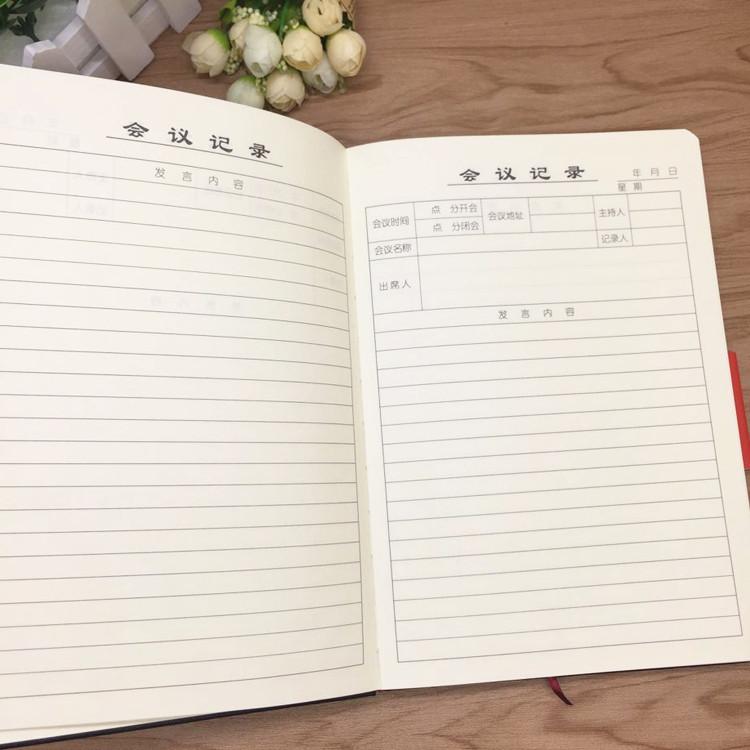 会议记录
发言内容
会议记录
年 月 日
星期
会议时间 点 分开会 会议地址 主持人
点 分闭会
会议名称 记录人
出席人
发言内容